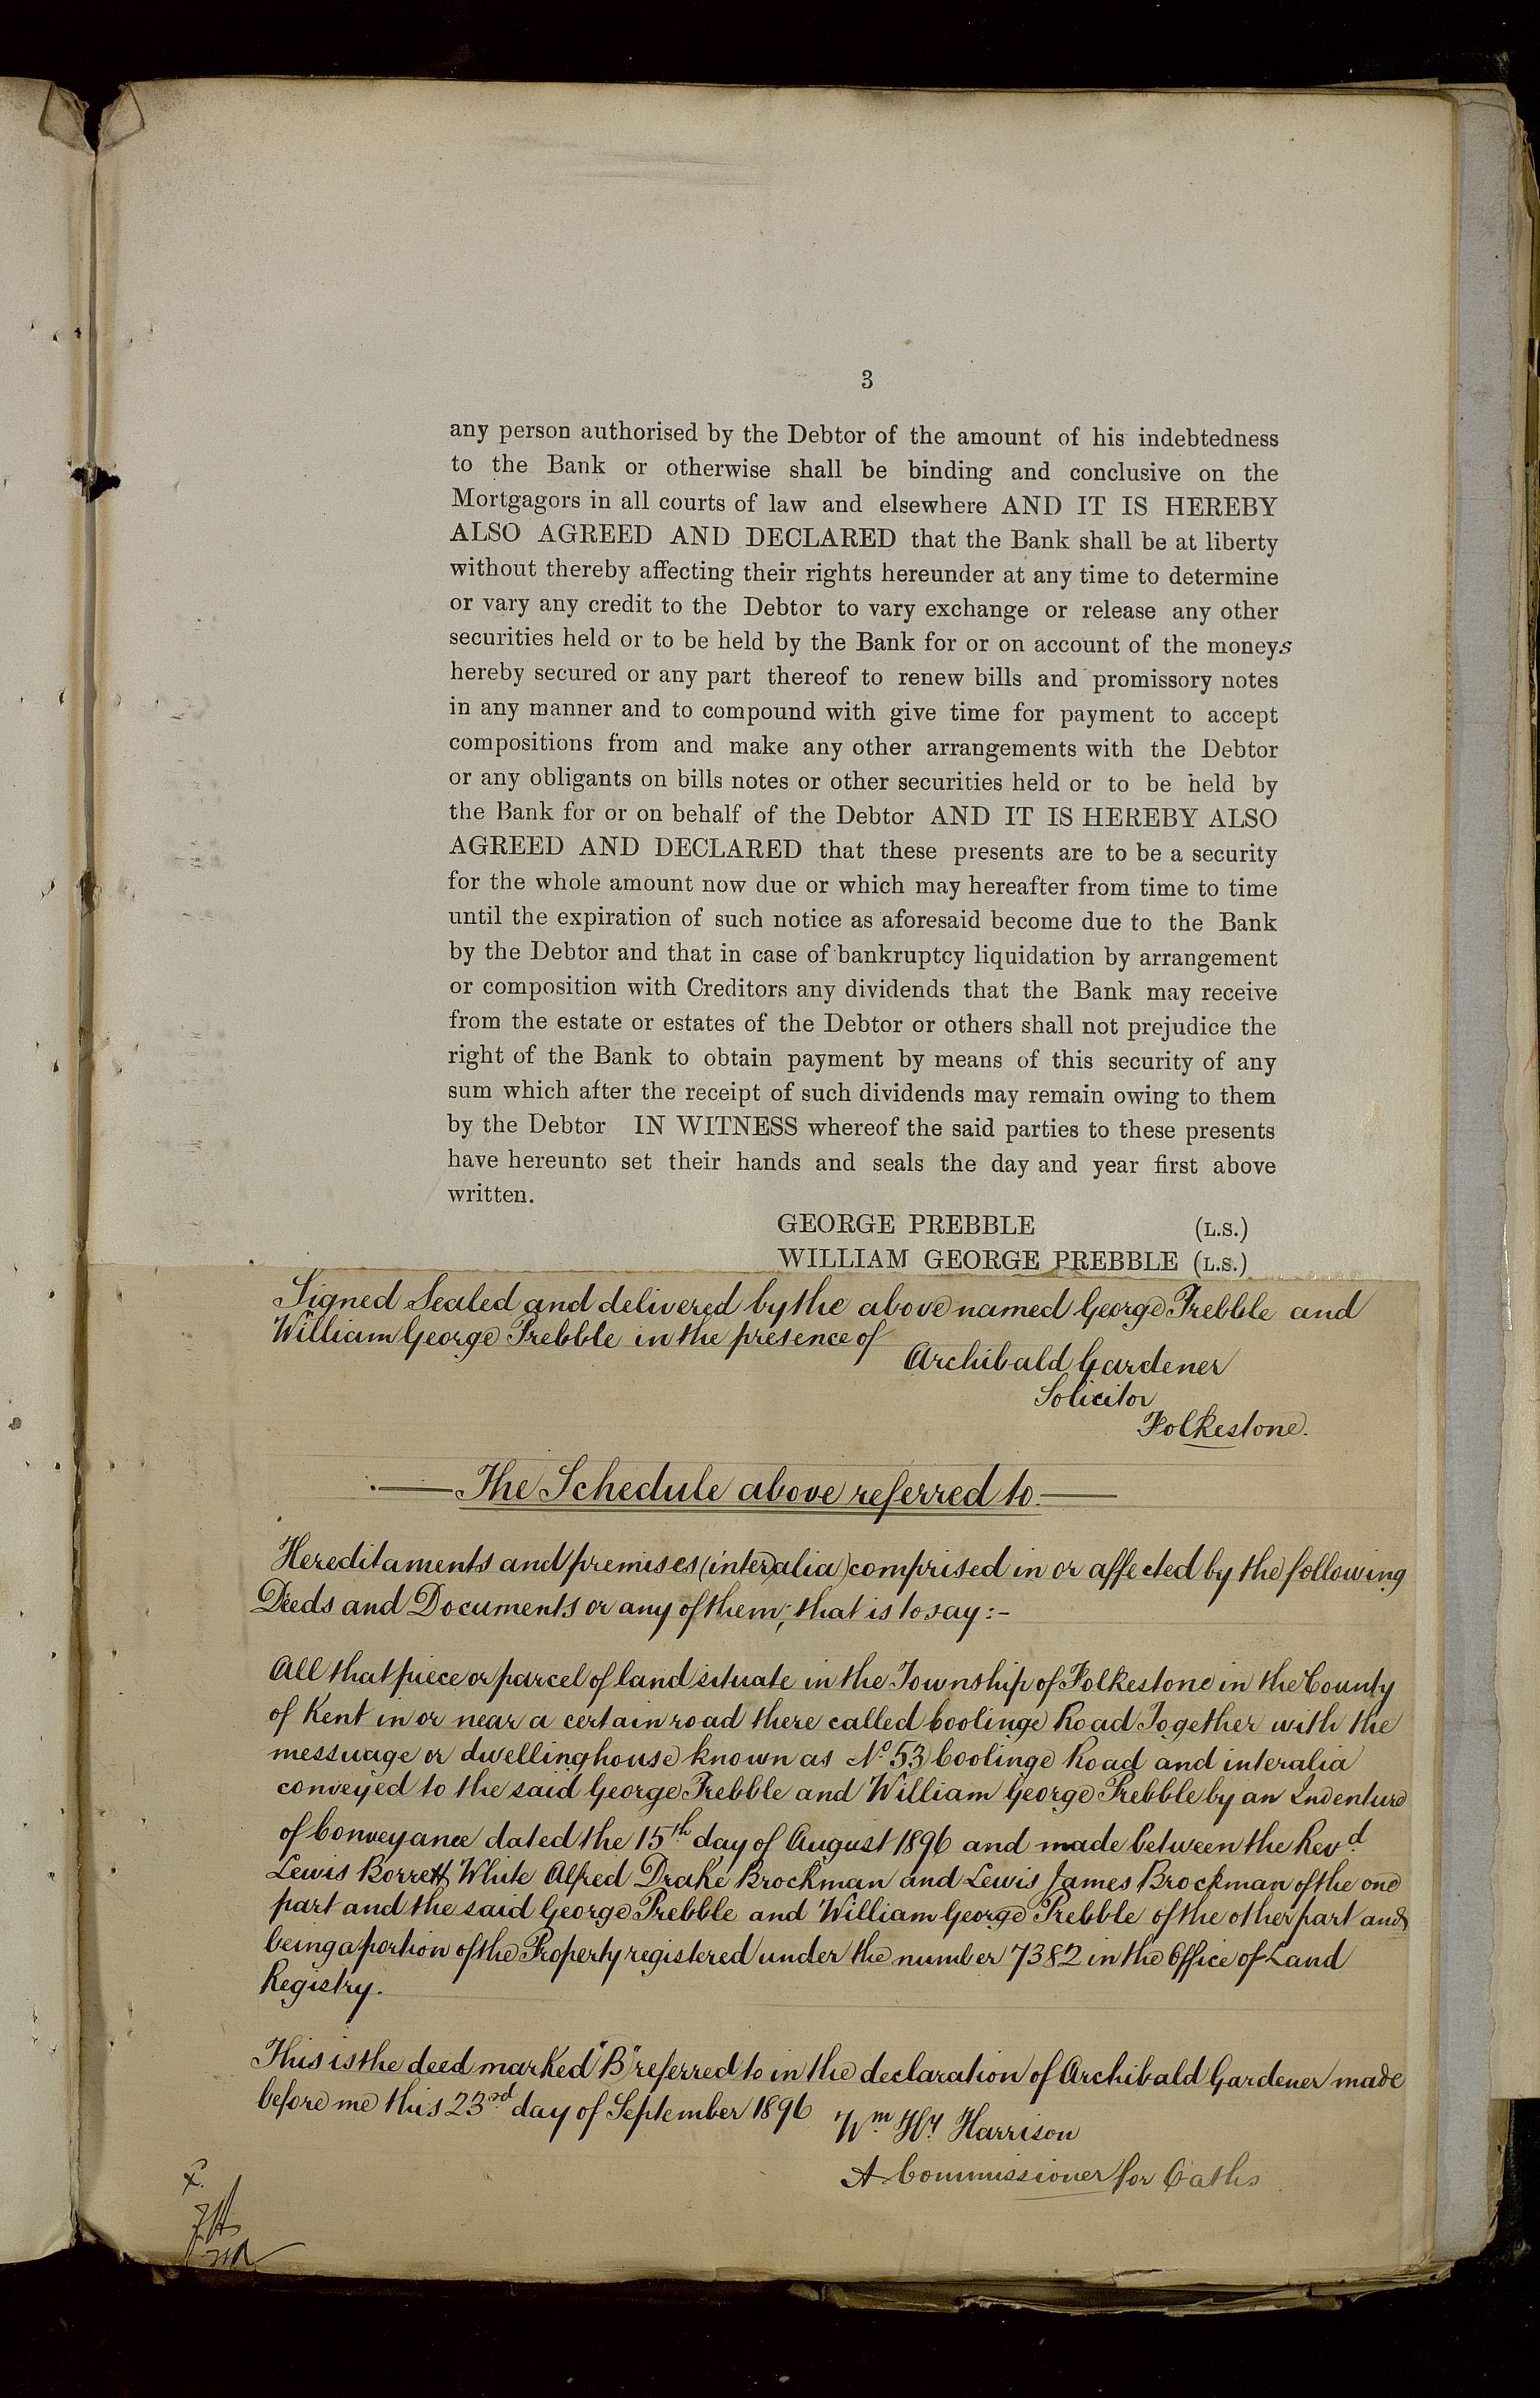 3
any person authorised by the Debtor of the amount of his indebtedness
to the Bank or otherwise shall be binding and conclusive on the
Mortgagors in all courts of law and elsewhere AND IT IS HEREBY
ALSO AGREED AND DECLARED that the Bank shall be at liberty
without thereby affecting their rights hereunder at any time to determine
or vary any credit to the Debtor to vary exchange or release any other
securities held or to be held by the Bank for or on account of the moneys
hereby secured or any part thereof to renew bills and promissory notes
in any manner and to compound with give time for payment to accept
compositions from and make any other arrangements with the Debtor
or any obligants on bills notes or other securities held or to be held by
the Bank for or on behalf of the Debtor AND IT IS HEREBY ALSO
AGREED AND DECLARED that these presents are to be a security
for the whole amount now due or which may hereafter from time to time
until the expiration of such notice as aforesaid become due to the Bank
by the Debtor and that in case of bankruptcy liquidation by arrangement
or composition with Creditors any dividends that the Bank may receive
from the estate or estates of the Debtor or others shall not prejudice the
right of the Bank to obtain payment by means of this security of any
sum which after the receipt of such dividends may remain owing to them
by the Debtor IN WITNESS whereof the said parties to these presents
have hereunto set their hands and seals the day and year first above
written.
GEORGE PREBBLE (L.S.)
WILLIAM GEORGE PREBBLE (L.S.)
Signed Sealed and delivered by the above named George Prebble and
William George Prebble in the presence of
Archibald Gardener
Solicitor
Folkestone.
The Schedule above referred to.
Hereditaments and premises (inter alia) comprised in or affected by the following
Deeds and Documents or any of them; that is to say:-
All that piece or parcel of land situate in the Township of Folkestone in the County
of Kent in or near a certain road there called Coolinge Road Together with the
messuage or dwellinghouse known as No. 53 Coolinge Road and interalia
conveyed to the said George Prebble and William George Prebble by an Indenture
of Conveyance dated the 15th day of August 1896 and made between the Revd.
Lewis Borrett White Alfred Drake Brockman and Lewis James Brockman of the one
part and the said George Prebble and William George Prebble of the other part and
being a portion of the Property registered under the number 7382 in the Office of Land
Registry.
This is the deed marked "B" referred to in the declaration of Archibald Gardener made
before me this 23rd day of September 1896
Wm. Hy. Harrison
A Commissioner for Oaths